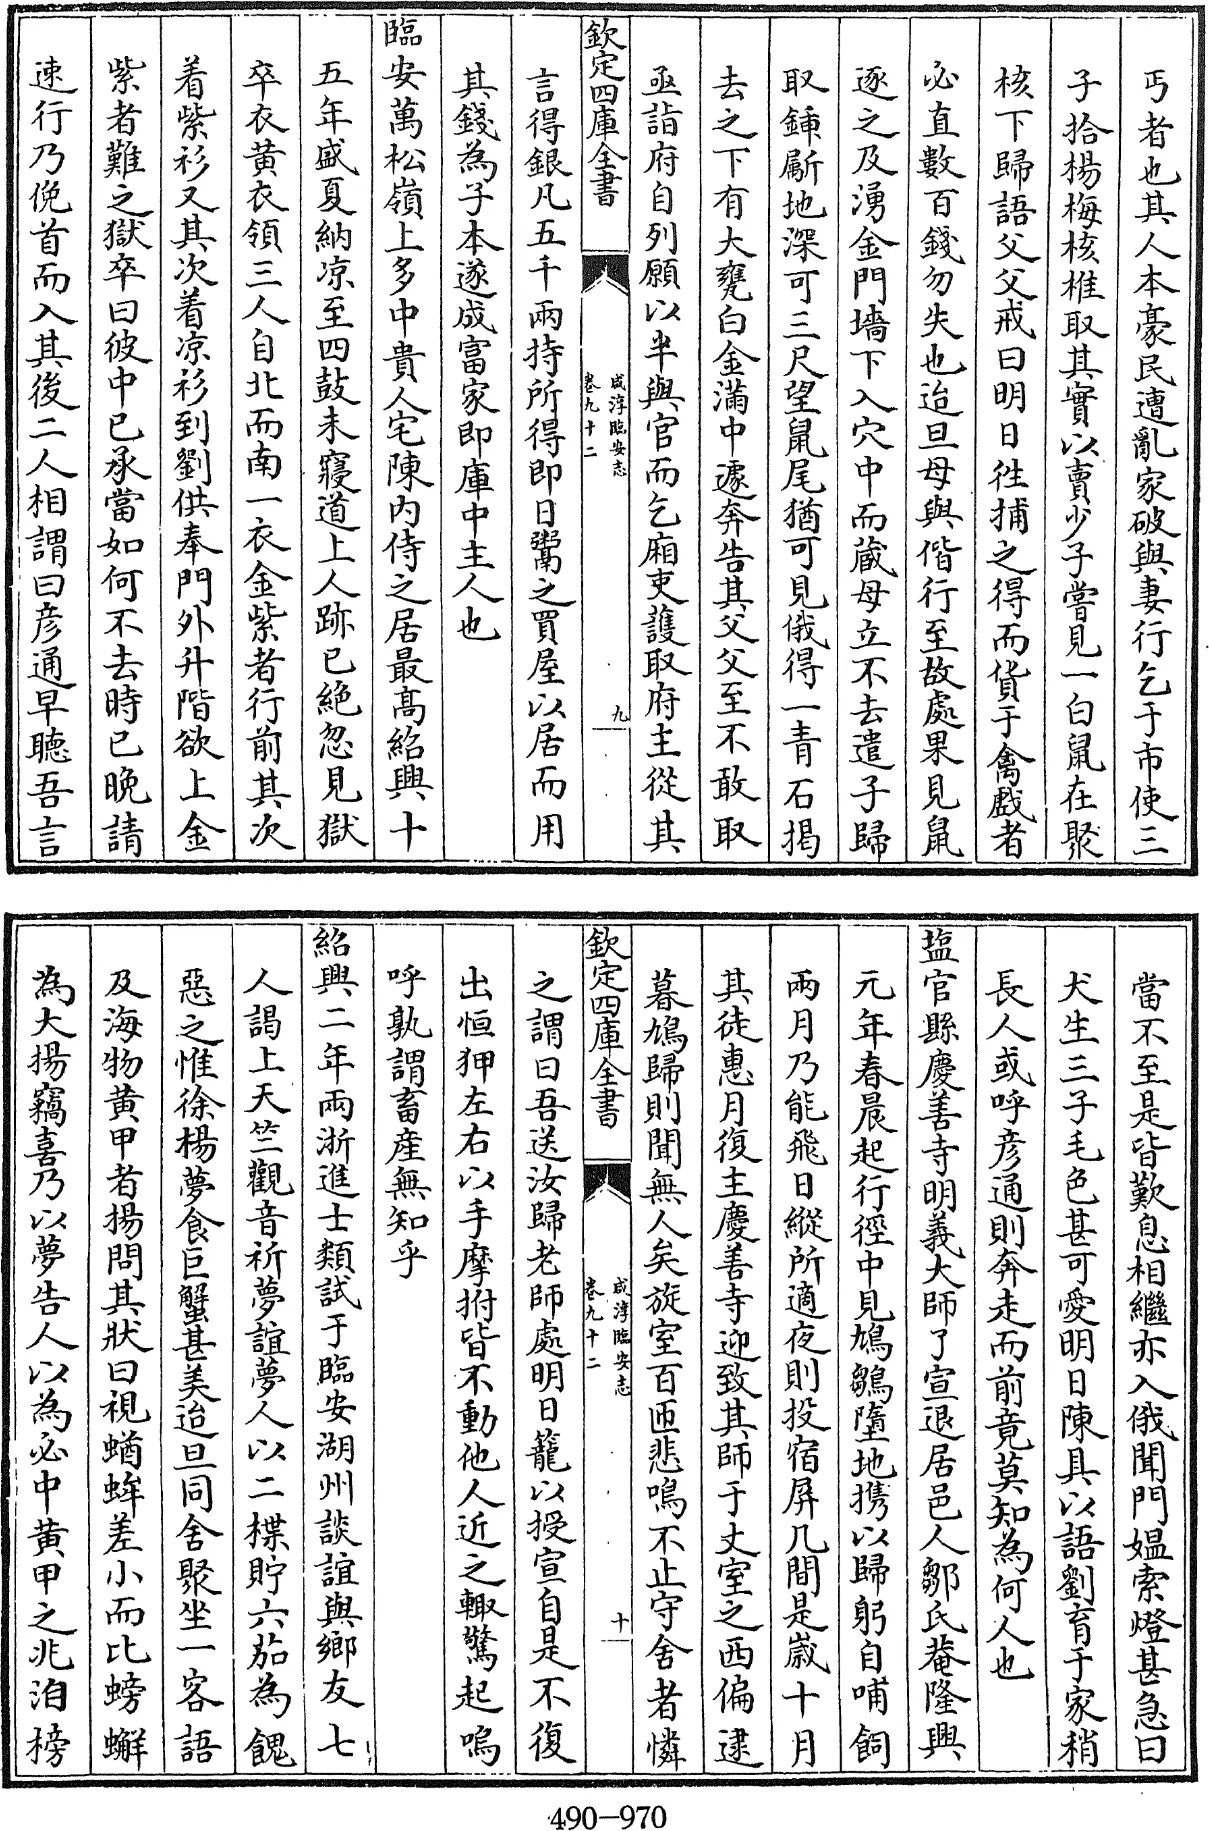 丐者也其人本豪民遭亂家破與妻行乞于市使三
子拾楊梅核椎取其實以賣少子嘗見一白鼠在聚
核下歸語父父戒曰明日徃捕之得而貨于禽戲者
必直數百錢勿失也迨旦母與偕行至故處果見鼠
逐之及湧金門墻下入穴中而蔵母立不去遣子歸
取鍤斸地深可三尺望鼠尾猶可見俄得一青石揭
去之下有大甕白金滿中遽奔告其父父至不敢取
亟詣府自列願以半與官而乞廂吏護取府主從其
欽定四庫全書
咸淳臨安志
卷九十二
九
言得銀凡五千兩持所得即日鬻之買屋以居而用
其錢為子本遂成富家即庫中主人也
臨安萬松嶺上多中貴人宅陳内侍之居最髙紹興十
五年盛夏納凉至四鼓未寢道上人跡已絶忽見獄
卒衣黄衣領三人自北而南一衣金紫者行前其次
着紫衫又其次着凉衫到劉供奉門外升階欲上金
紫者難之獄卒曰彼中已承當如何不去時已晚請
速行乃俛首而入其後二人相謂曰彦通早聽吾言
當不至是皆歎息相繼亦入俄聞門媪索燈甚急曰
犬生三子毛色甚可愛明日陳具以語劉育于家稍
長人或呼彦通則奔走而前竟莫知為何人也
塩官縣慶善寺明義大師了宣退居邑人鄒氏菴隆興
元年春晨起行徑中見鳩鶵墮地携以歸躬自哺飼
兩月乃能飛日縱所適夜則投宿屏几間是嵗十月
其徒惠月復主慶善寺迎致其師于丈室之西偏逮
暮鳩歸則聞無人矣旋室百匝悲鳴不止守舍者憐
欽定四庫全書
咸淳臨安志
卷九十二
十
之謂曰吾送汝歸老師處明日籠以授宣自是不復
出恒狎左右以手摩拊皆不動他人近之輙驚起嗚
呼孰謂畜産無知乎
紹興二年兩浙進士類試于臨安湖州談誼與鄉友七
人謁上天竺觀音祈夢誼夢人以二楪貯六茄為餽
惡之惟徐楊夢食巨蟹甚美迨旦同舍聚坐一客語
及海物黄甲者揚問其狀曰視蝤蛑差小而比螃蠏
為大揚竊喜乃以夢告人以為必中黄甲之兆洎榜
490-970